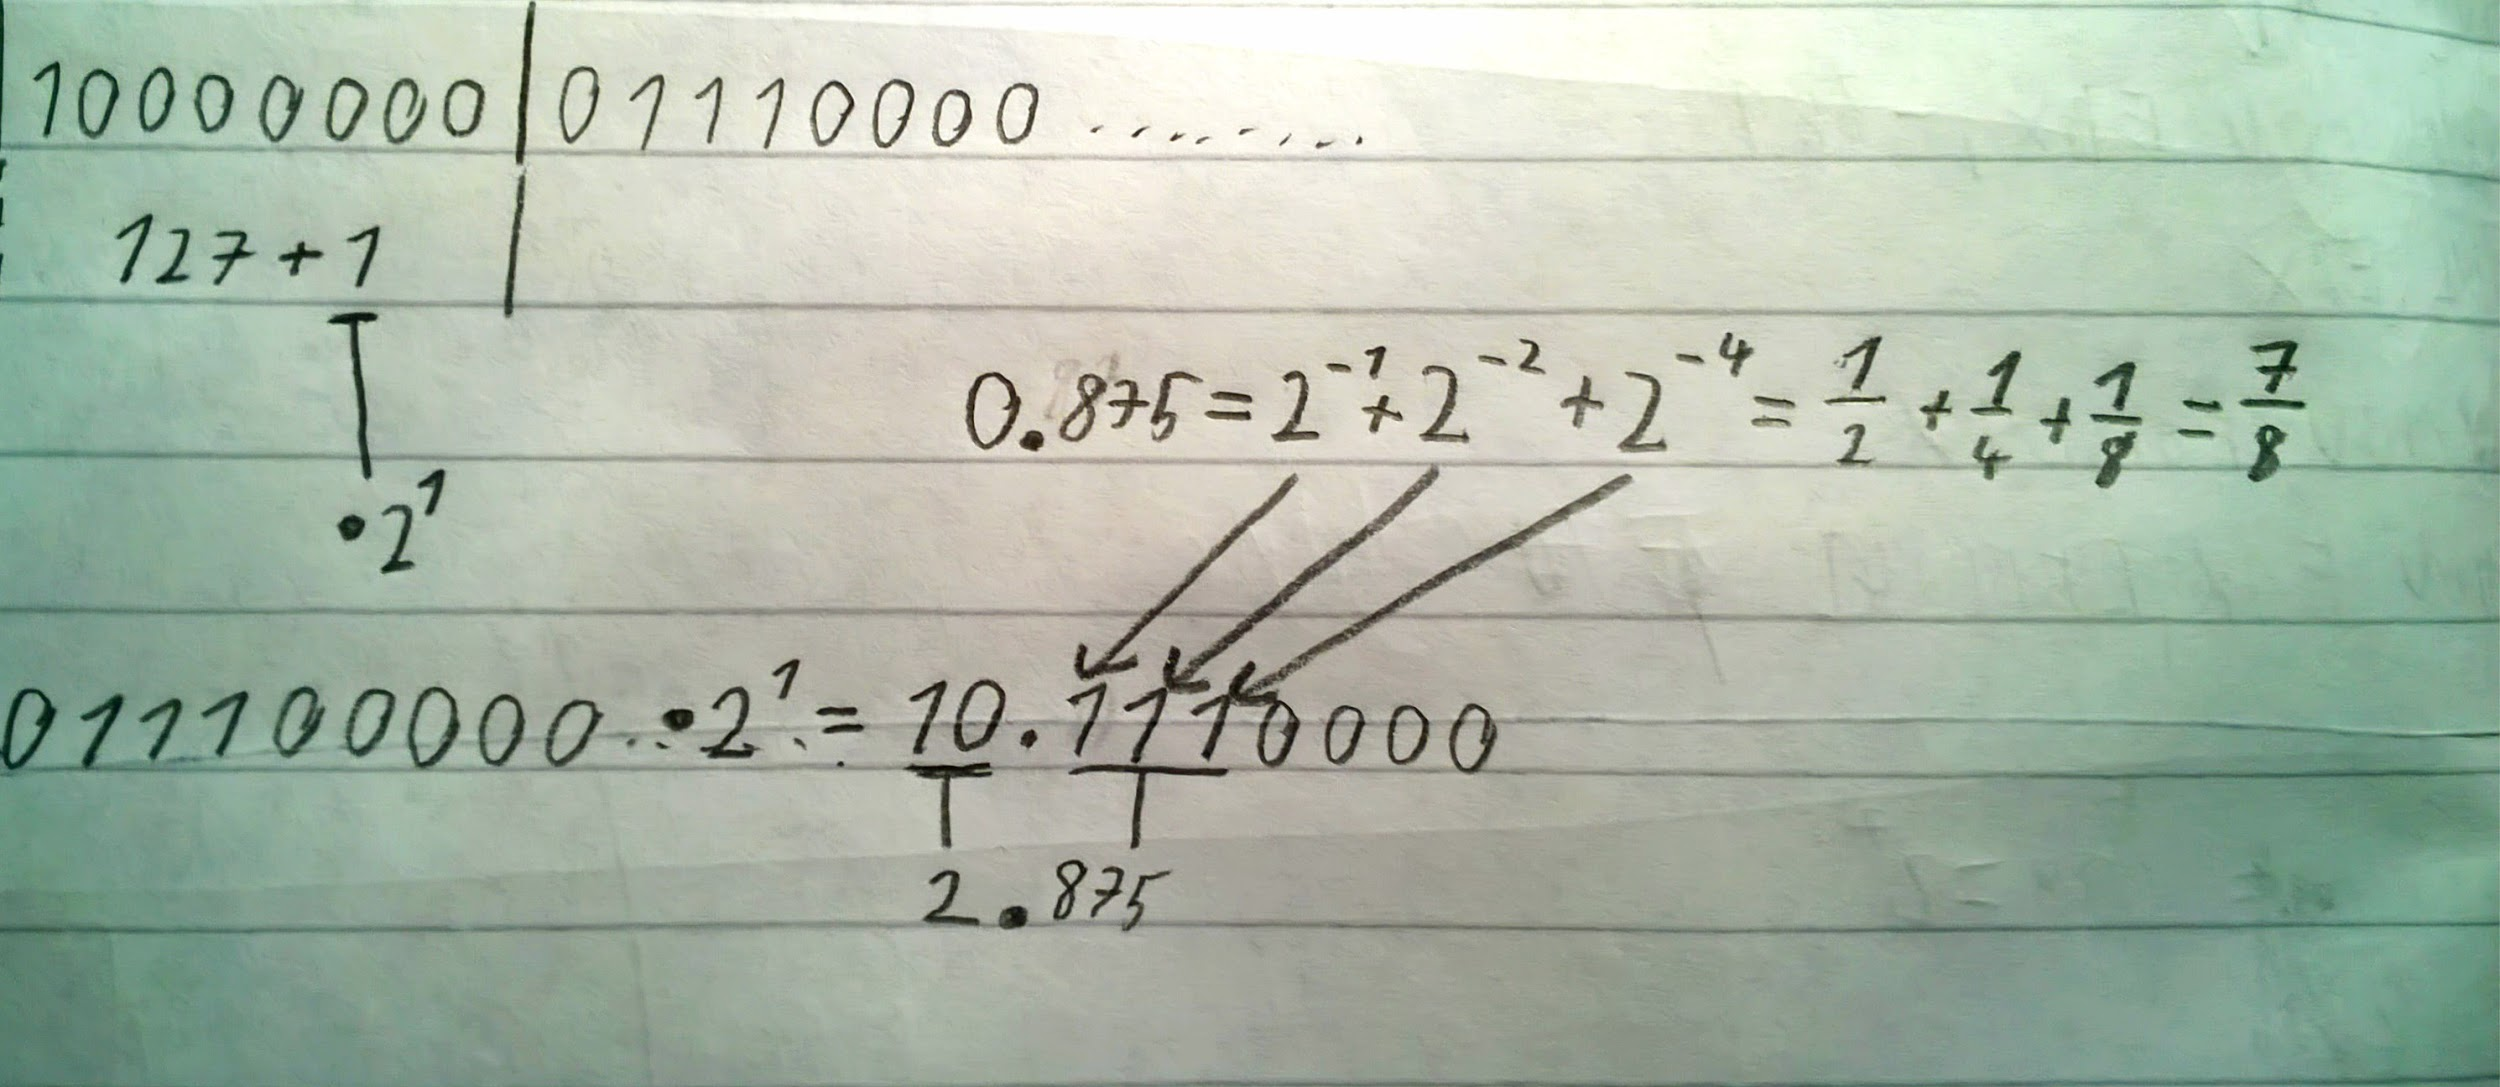 10000000 | 01110000 ........
127 + 1
0.875 = 2^-1 + 2^-2 + 2^-4 = 1/2 + 1/4 + 1/8 = 7/8
•2^1
011100000..•2^1 = 10.1110000
2.875